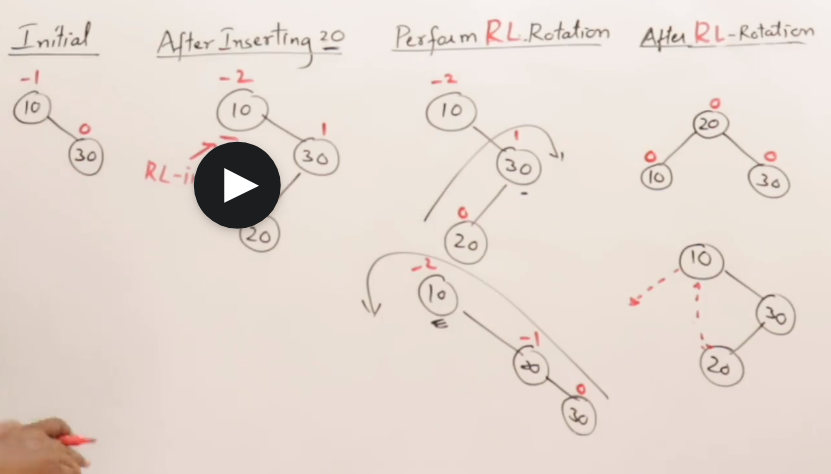 Initial
-1
10
0
30
After Inserting 20
-2
10
1
30
RL-i
20
Perform RL Rotation
-2
10
1
30
0
20
-2
10
-1
20
0
30
After RL-Rotation
0
20
0
10
0
30
10
30
20